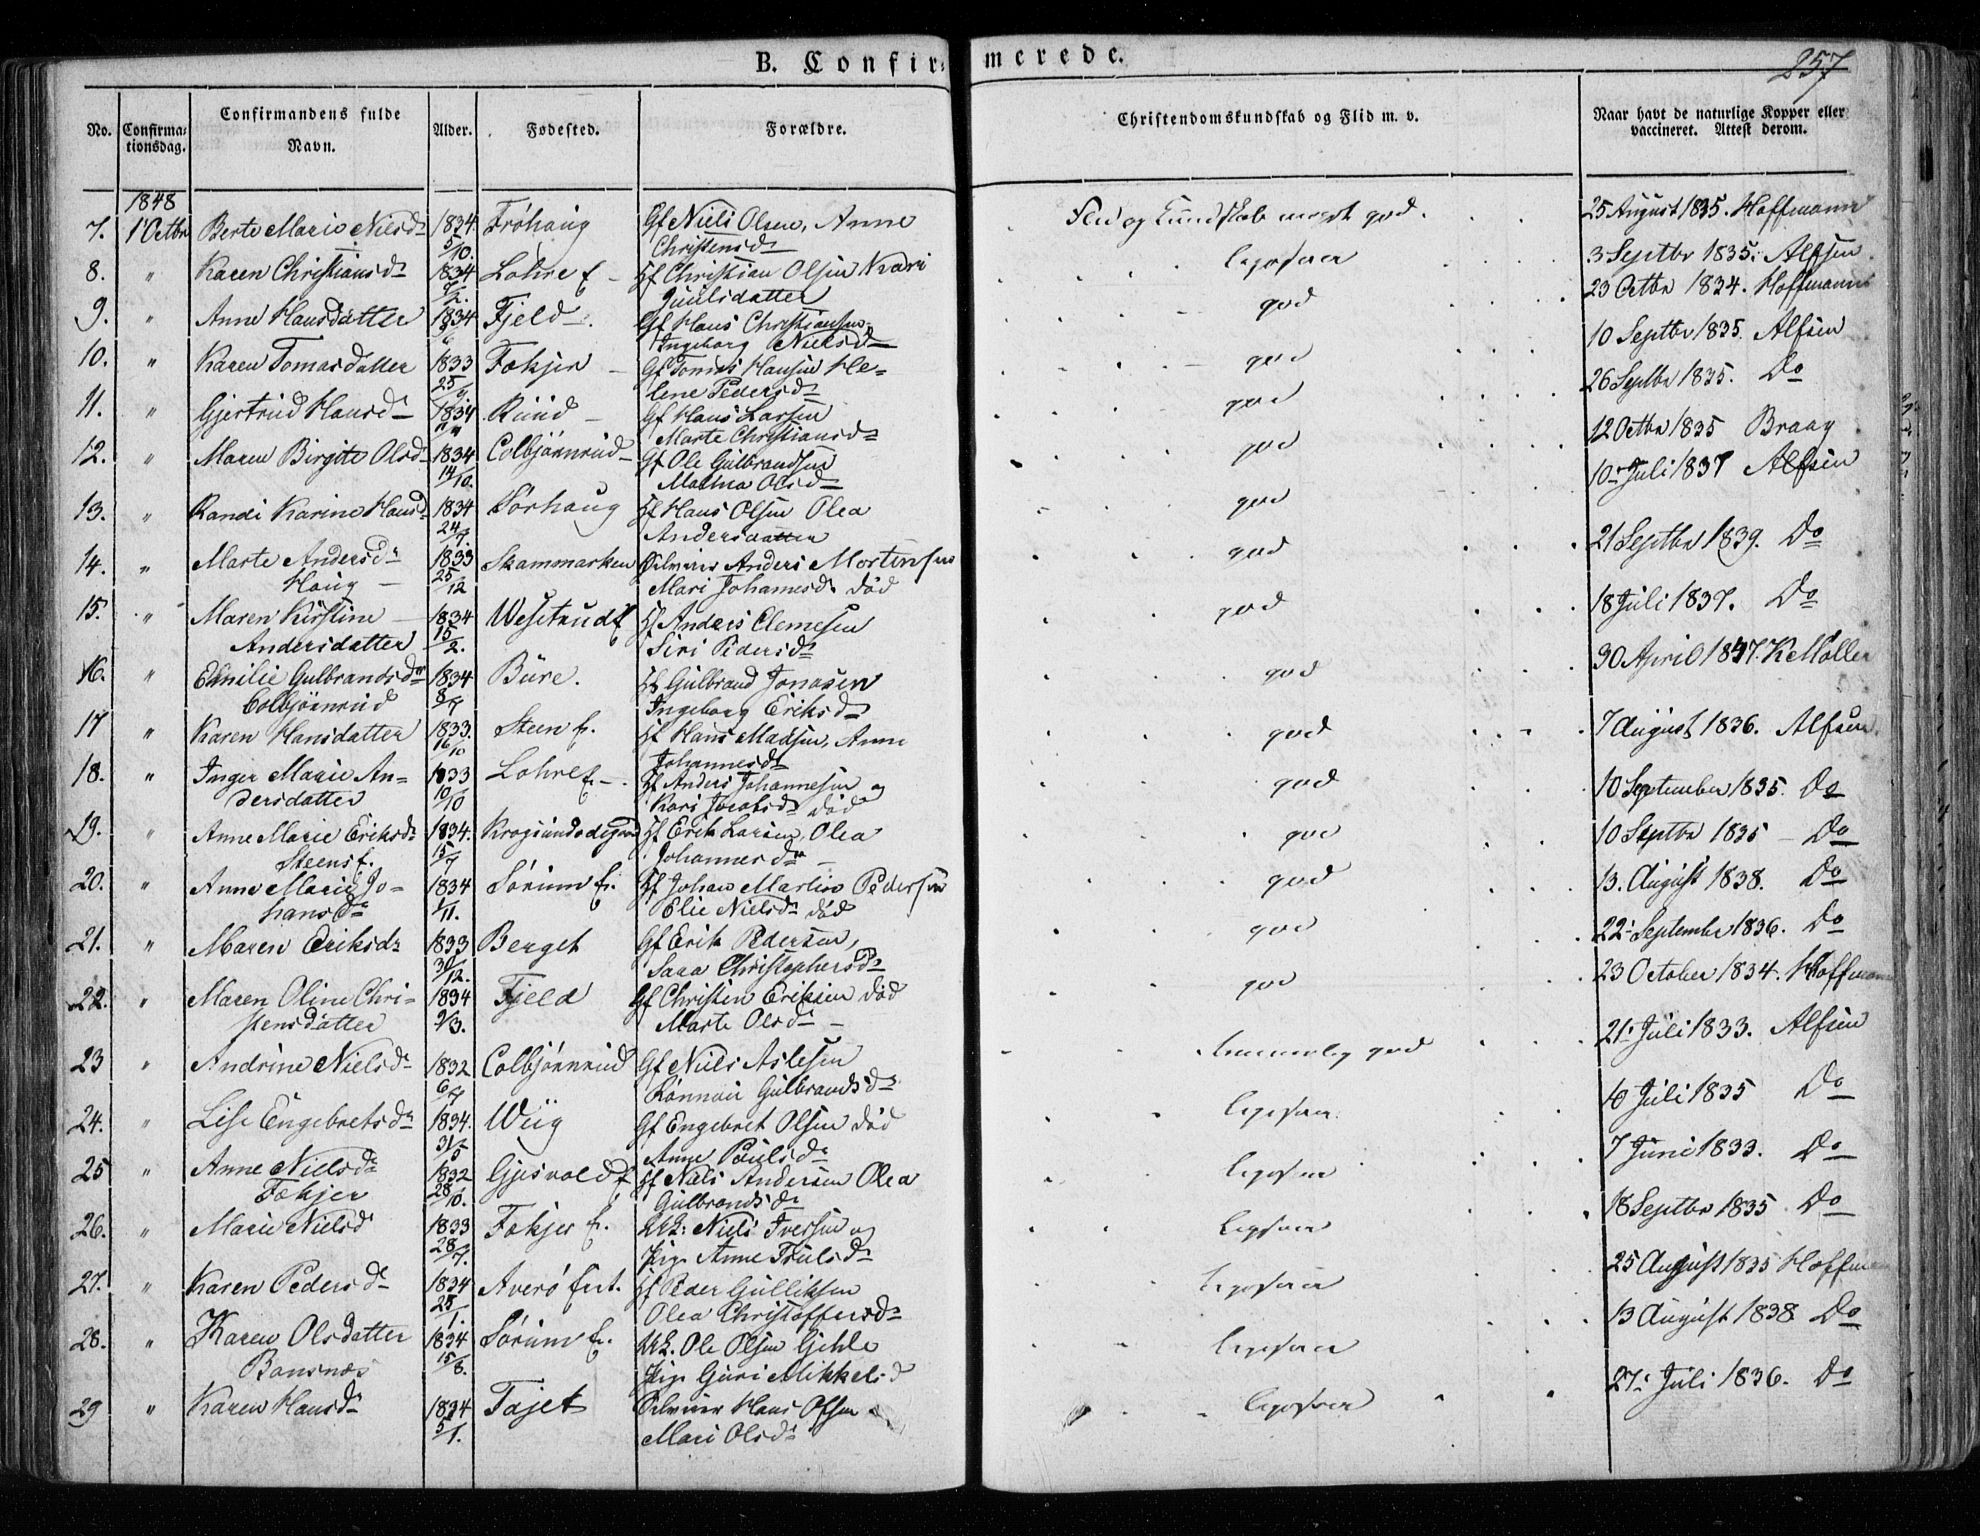 B. Confirmerede. 257
No. Confirmationsdag. Confirmandens fulde Navn. Alder. Fødested. Forældre. Christendomskundskab og Flid m. v. Naar havt de naturlige Kopper eller vaccineret. Attest derom.
1848
7. 1 Octbr Berte Marie Nielsdr 1834 5/10. Frøhaug Gf Niels Olsen, Anne Christensdr Flid og Kundskab meget god 25 August 1835. Hoffmann
8. " Karen Christiansdr 1834 7/2. Lohre E. Hf Christian Olsen Kari Juulsdatter ligesaa 3 Septbr 1835. Alfsen
9. " Anne Hansdatter 1834 Fjeld Gf Hans Christiansen, Ingeborg Nielsdr god 23 Octbr 1834. Hoffmann
10. " Karen Tomasdatter 1833 25/9. Fækjer Gf Tomas Hansen Helene Pedersdr god 10 Septbr 1835. Alfsen
11. " Gjertrud Hansdr 1834 Ruud Gf Hans Larsen Marte Christiansdr god 26 Septbr 1835. Do
12. " Maren Birgite Olsdr 1834 14/10. Colbjørnrud Gf Ole Gulbrandsen Mathia Olsdr god 12 Octbr 1835 Braag
13. " Randi Karine Hansdr 1834 24/7. Sørhaug Hf Hans Olsen Olea Andersdatter god 10 Juli 1837 Alfsen
14. " Marte Andersdr Haug 1833 25/12 Skammarken Anders Mortensen Mari Johannesdr død god 21 Septbr 1839. Do
15. " Maren Kirstine Andersdatter 1834 15/2. Westrud E Hf Anders Clemesen Siri Pedersdr god 18 Juli 1837. Do
16. " Emilie Gulbrandsdr Colbjørnrud 1834 8/7 Bure. Hf Gulbrand Jonasen Ingeborg Eriksdr god 30 April 1847. K Møller
17 " Karen Hansdatter 1833. 16/10 Steen E. Hf Hans Madsen, Anne Johannesdr god 7 August 1836. Alfsen
18. " Inger Marie Andersdatter 1833 10/10 Lohre E. Hf Anders Johannesen og Kari Jacobsdr død god 10 September 1835. Do
19. " Anne Marie Eriksdr Steens E. 1834. 15/7 Krogsundødegaard Hf Erik Larsen, Olea Johannesdr god 10 Septbr 1835 Do
20. " Anne Marie Johansdr 1834 1/11. Sørum E. Hf Johan Martin Pedersen Elie Nielsdr død god 13. August 1838. Do
21. " Maren Eriksdr 1833 30/12. Berget Gf Erik Pedersen, Sara Christophersdr god 22 September 1836. Do
22. " Maren Oline Christensdatter 1834 9/3. Fjeld Gf Christen Eriksen død Marte Olsdr god 23 October 1834. Hoffmann
23 " Andrine Nielsdr 1832 6/7 Colbjørnrud Gf Niels Aslesen Rønnau Gulbrandsdr temmelig god 21 Juli 1833. Alfsen
24. " Lise Engebretsdr 1834. 31/5 Wiig Gf Engebret Olsen død Anne Paulsdr ligesaa 10 Juli 1835 Do
25 " Anne Nielsdr Fækjer 1832 28/10. Gjesvold E Hf Niels Andersen Olea Gulbrandsdr ligesaa 7 Juni 1833. Do
26. " Marie Nielsd 1833 28/7. Fækjer E. Uk: Niels Iversen og Pige Anne Trulsdr ligesaa 18 Septbr 1835. Do
27. " Karen Pedersdr 1834 25/1. Averø Eit. Hf Peder Gulliksen Olea Christoffersdr ligesaa 25 August 1835 Hoffmann
28. " Karen Olsdatter Bansnæs 1834 15/8. Sørum E. Uk. Ole Olsen Gihle Pige Guri Mikkelsd ligesaa 13 August 1838 Do
29 " Karen Hansdr 1834 5/1. Fajet Hans Olsen Mari Olsdr ligesaa 27 Juli 1836. Do